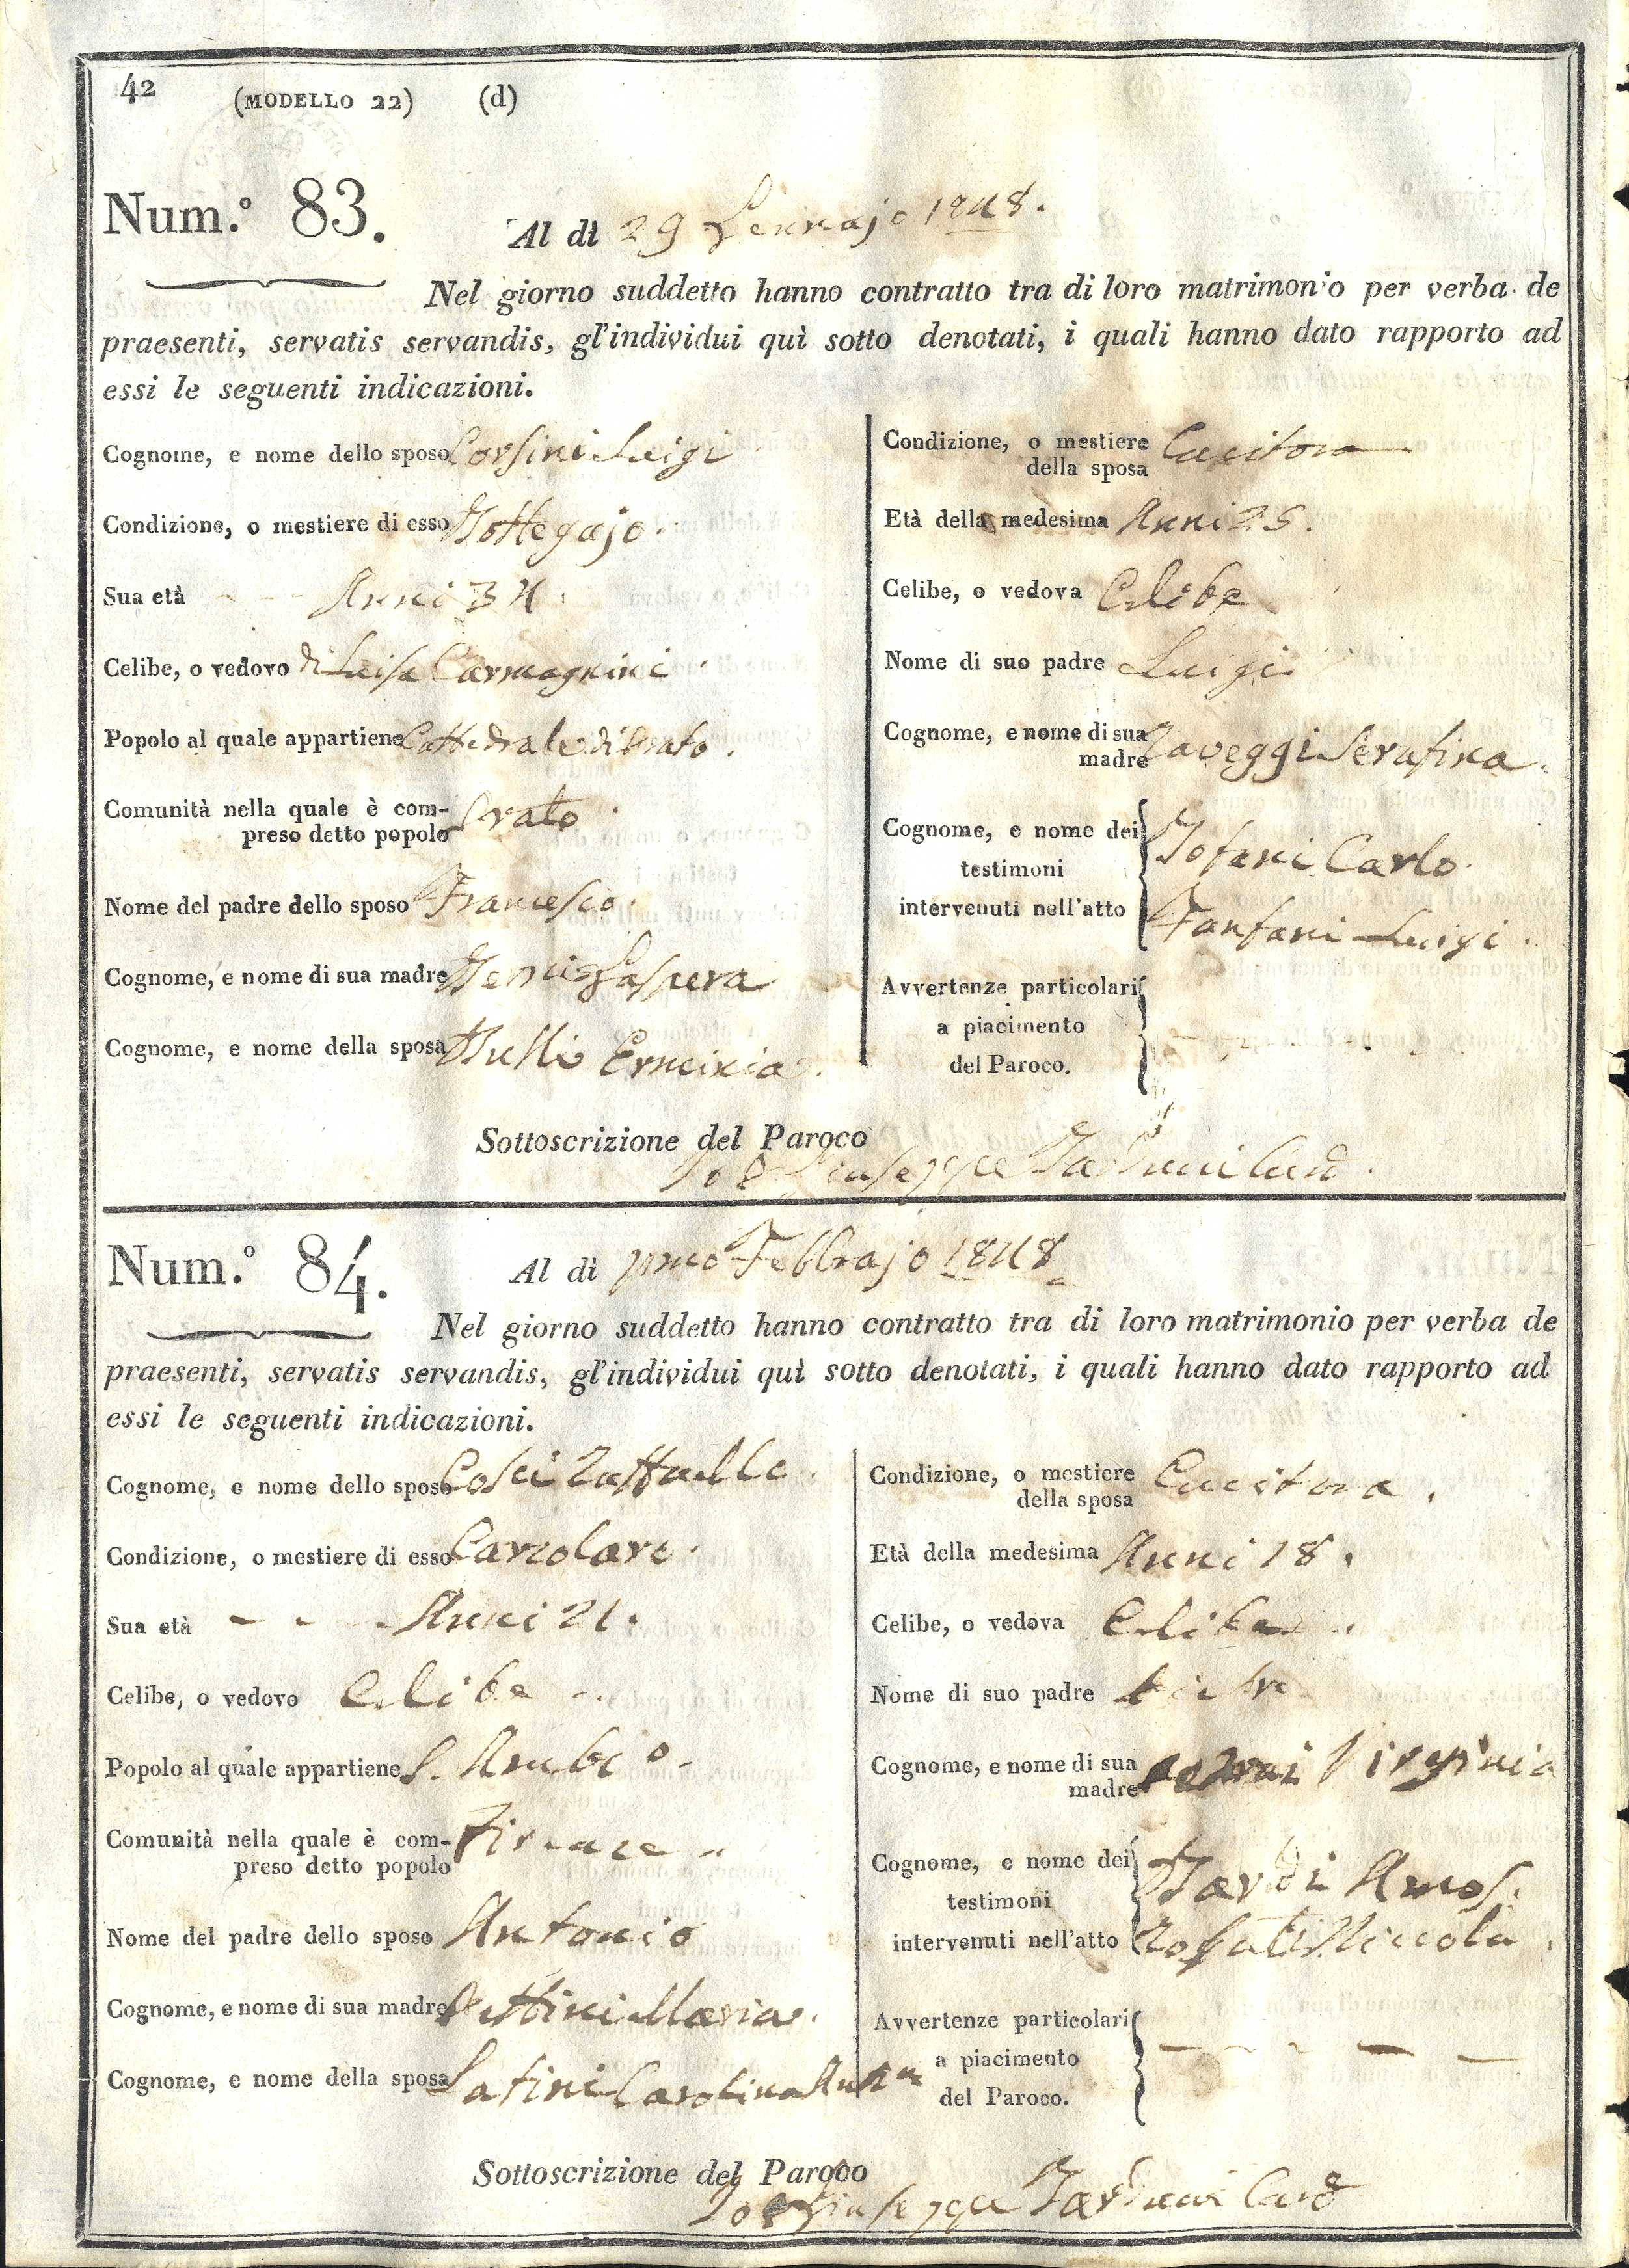 42 (MODELLO 22) (d)
Num.º 83. Al dì 29 Gennajo 1848.
Nel giorno suddetto hanno contratto tra di loro matrimonio per verba de
praesenti, servatis servandis, gl'individui quì sotto denotati, i quali hanno dato rapporto ad
essi le seguenti indicazioni.
Cognome, e nome dello sposo Corsini Luigi
Condizione, o mestiere di esso Bottegajo.
Sua età Anni 34.
Celibe, o vedovo di Luisa Carmagnini.
Popolo al quale appartiene Cattedrale di Prato.
Comunità nella quale è com-
preso detto popolo Prato.
Nome del padre dello sposo Francesco.
Cognome, e nome di sua madre Gaspera
Cognome, e nome della sposa Erminia.
Condizione, o mestiere
della sposa Cucitora
Età della medesima Anni 25.
Celibe, o vedova Celibe
Nome di suo padre Luigi
Cognome, e nome di sua
madre Raveggi Serafina.
Cognome, e nome dei
testimoni
intervenuti nell'atto
Tofani Carlo.
Fanfani Luigi.
Avvertenze particolari
a piacimento
del Paroco.
Sottoscrizione del Paroco
Giuseppe
Num.º 84. Al dì pmo Febbrajo 1848
Nel giorno suddetto hanno contratto tra di loro matrimonio per verba de
praesenti, servatis servandis, gl'individui quì sotto denotati, i quali hanno dato rapporto ad
essi le seguenti indicazioni.
Cognome, e nome dello sposo Cosci Raffaello.
Condizione, o mestiere di esso Carzolaro.
Sua età Anni 21.
Celibe, o vedovo Celibe
Popolo al quale appartiene S. Ambº
Comunità nella quale è com-
preso detto popolo Firenze
Nome del padre dello sposo Antonio
Cognome, e nome di sua madre Pettini Maria.
Cognome, e nome della sposa Latini Carolina
Condizione, o mestiere
della sposa Cucitora.
Età della medesima Anni 18.
Celibe, o vedova Celibe
Nome di suo padre Pietro
Cognome, e nome di sua
madre Virginia
Cognome, e nome dei
testimoni
intervenuti nell'atto
Bardi Amos.
Rosati Niccola.
Avvertenze particolari
a piacimento
del Paroco.
Sottoscrizione del Paroco
Giuseppe